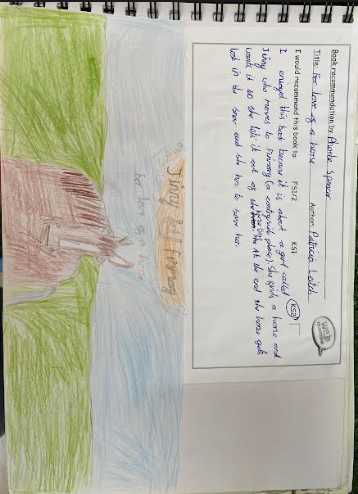 Book recommendation by Phoebe Spencer
Title: For love of a horse Author: Patricia Leitch
I would recommend this book to: FS1/2 KS1 KS2
I enjoyed this book because it is about a girl called
Jinny who moves to Finmory (a countryside place). She finds a horse and
wants it so she lets it out of
the At the end the horse gets
lost in the snow and she has to save her.
Jinny at Finmory
For love of a horse